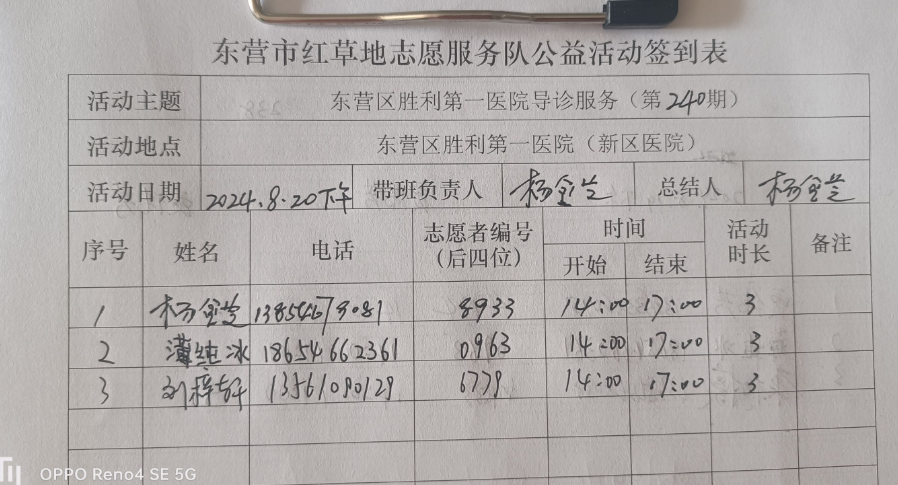 东营市红草地志愿服务队公益活动签到表
活动主题 东营区胜利第一医院导诊服务（第240期）
活动地点 东营区胜利第一医院（新区医院）
活动日期 2024.8.20下午 带班负责人 杨金芝 总结人 杨金芝
序号 姓名 电话 志愿者编号（后四位） 时间 开始 结束 活动时长 备注
1 杨金芝 13854679081 8933 14:00 17:00 3
2 薄纯冰 18654662361 0963 14:00 17:00 3
3 刘梓轩 13561090129 6779 14:00 17:00 3
OPPO Reno4 SE 5G